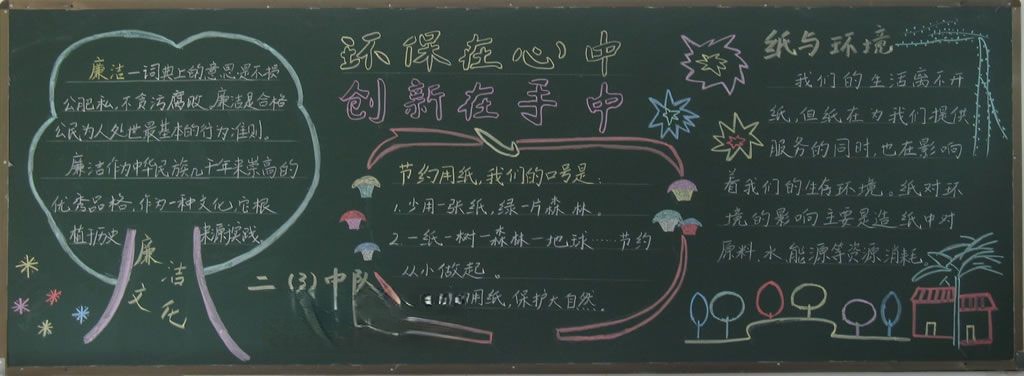 廉洁一词典上的意思是不损
公肥私,不贪污腐败。廉洁是合格
公民为人处世最基本的行为准则。
廉洁作为中华民族几千年来崇高的
优秀品格,作为一种文化,它根
植于历史 来原实践
廉洁
文化
二(3)中队
环保在心中
创新在手中
节约用纸,我们的口号是:
1.少用一张纸,绿一片森林。
2.一纸一树一森林一地球……节约
从小做起。
用纸,保护大自然。
纸与环境
我们的生活离不开
纸,但纸在为我们提供
服务的同时,也在影响
着我们的生存环境。纸对环
境的影响主要是造纸中对
原料、水、能源等资源消耗